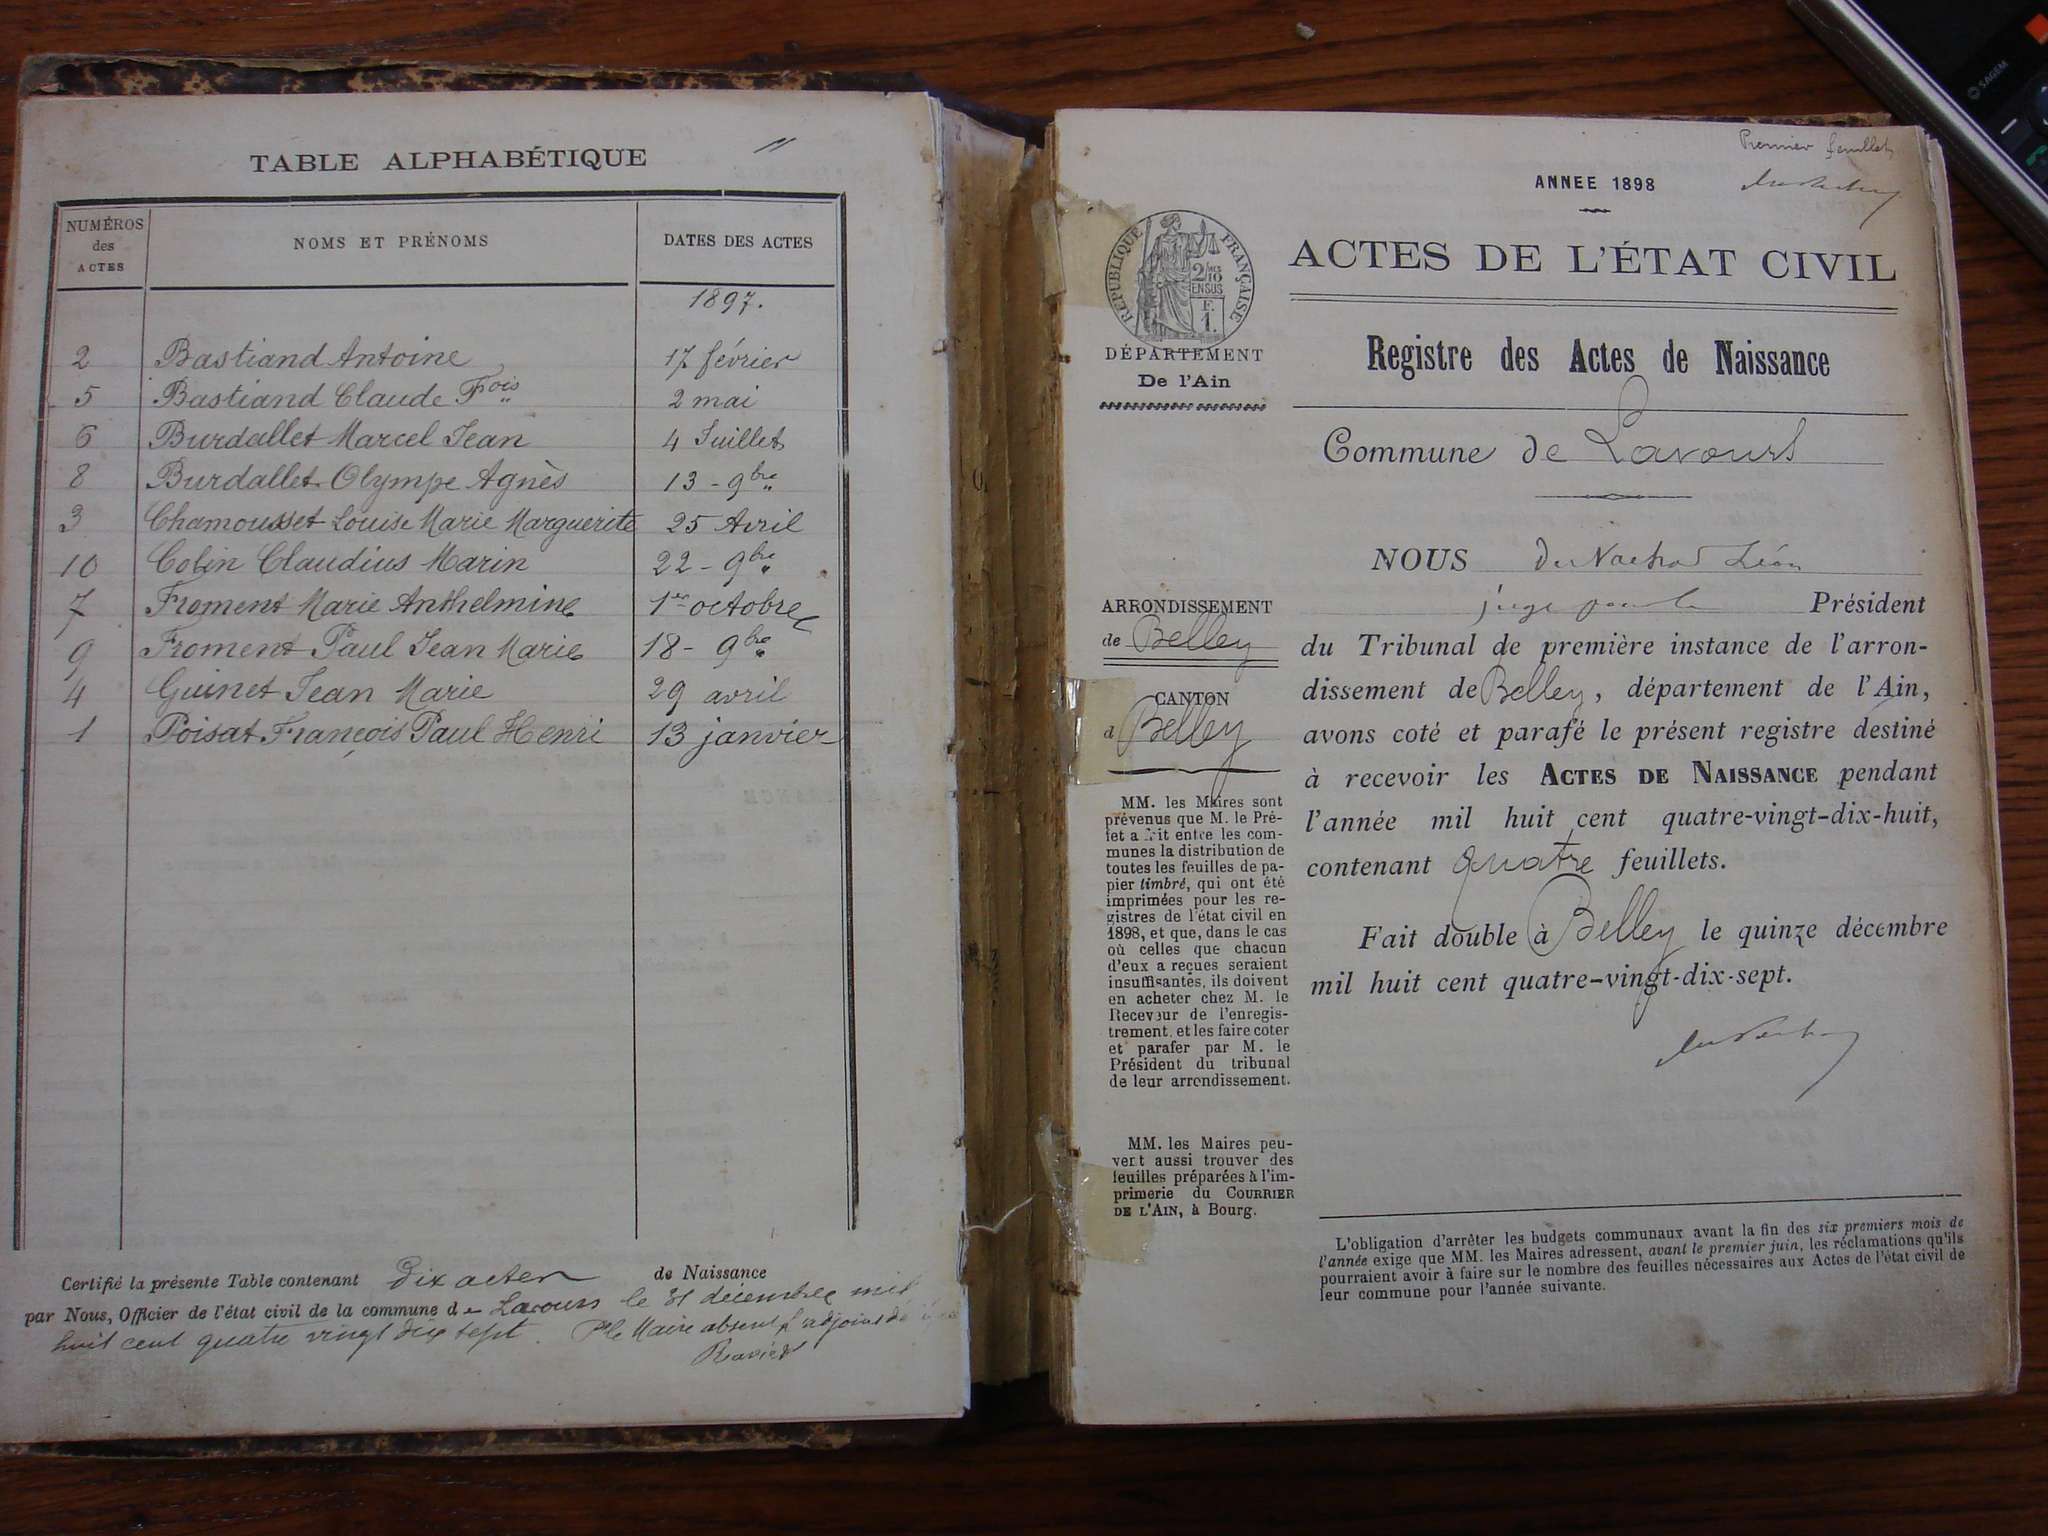 TABLE ALPHABÉTIQUE
NUMÉROS
des
ACTES
NOMS ET PRÉNOMS
DATES DES ACTES
1897.
2 Bastiand Antoine 17 février
5 Bastiand Claude Fois 2 mai
6 Burdallet Marcel Jean 4 Juillet
8 Burdallet Olympe Agnès 13 - 9bre
3 Chamousset Louise Marie Marguerite 25 Avril
10 Colin Claudius Marin 22 - 9bre
7 Froment Marie Anthelmine 1er octobre
9 Froment Paul Jean Marie 18 - 9bre
4 Guinet Jean Marie 29 avril
1 Poisat François Paul Henri 13 janvier
Certifié la présente Table contenant Dix actes de Naissance
par Nous, Officier de l'état civil de la commune de Lavours le 31 décembre mil
huit cent quatre vingt dix sept. P. le Maire absent l'adjoint
Premier feuillet
ANNEE 1898
ACTES DE L'ÉTAT CIVIL
RÉPUBLIQUE FRANÇAISE
2/10
EN SUS
F.
1.
DÉPARTEMENT
De l'Ain
Registre des Actes de Naissance
Commune de Lavours
NOUS Léon
juge Président
du Tribunal de première instance de l'arron-
dissement de Belley, département de l'Ain,
avons coté et parafé le présent registre destiné
à recevoir les ACTES DE NAISSANCE pendant
l'année mil huit cent quatre-vingt-dix-huit,
contenant quatre feuillets.
Fait double à Belley le quinze décembre
mil huit cent quatre-vingt-dix-sept.
ARRONDISSEMENT
de Belley
CANTON
d Belley
MM. les Maires sont
prévenus que M. le Pré-
fet a fait entre les com-
munes la distribution de
toutes les feuilles de pa-
pier timbré, qui ont été
imprimées pour les re-
gistres de l'état civil en
1898, et que, dans le cas
où celles que chacun
d'eux a reçues seraient
insuffisantes, ils doivent
en acheter chez M. le
Receveur de l'enregis-
trement, et les faire coter
et parafer par M. le
Président du tribunal
de leur arrondissement.
MM. les Maires peu-
vent aussi trouver des
feuilles préparées à l'im-
primerie du COURRIER
DE L'AIN, à Bourg.
L'obligation d'arrêter les budgets communaux avant la fin des six premiers mois de
l'année exige que MM. les Maires adressent, avant le premier juin, les réclamations qu'ils
pourraient avoir à faire sur le nombre des feuilles nécessaires aux Actes de l'état civil de
leur commune pour l'année suivante.
SAGEM